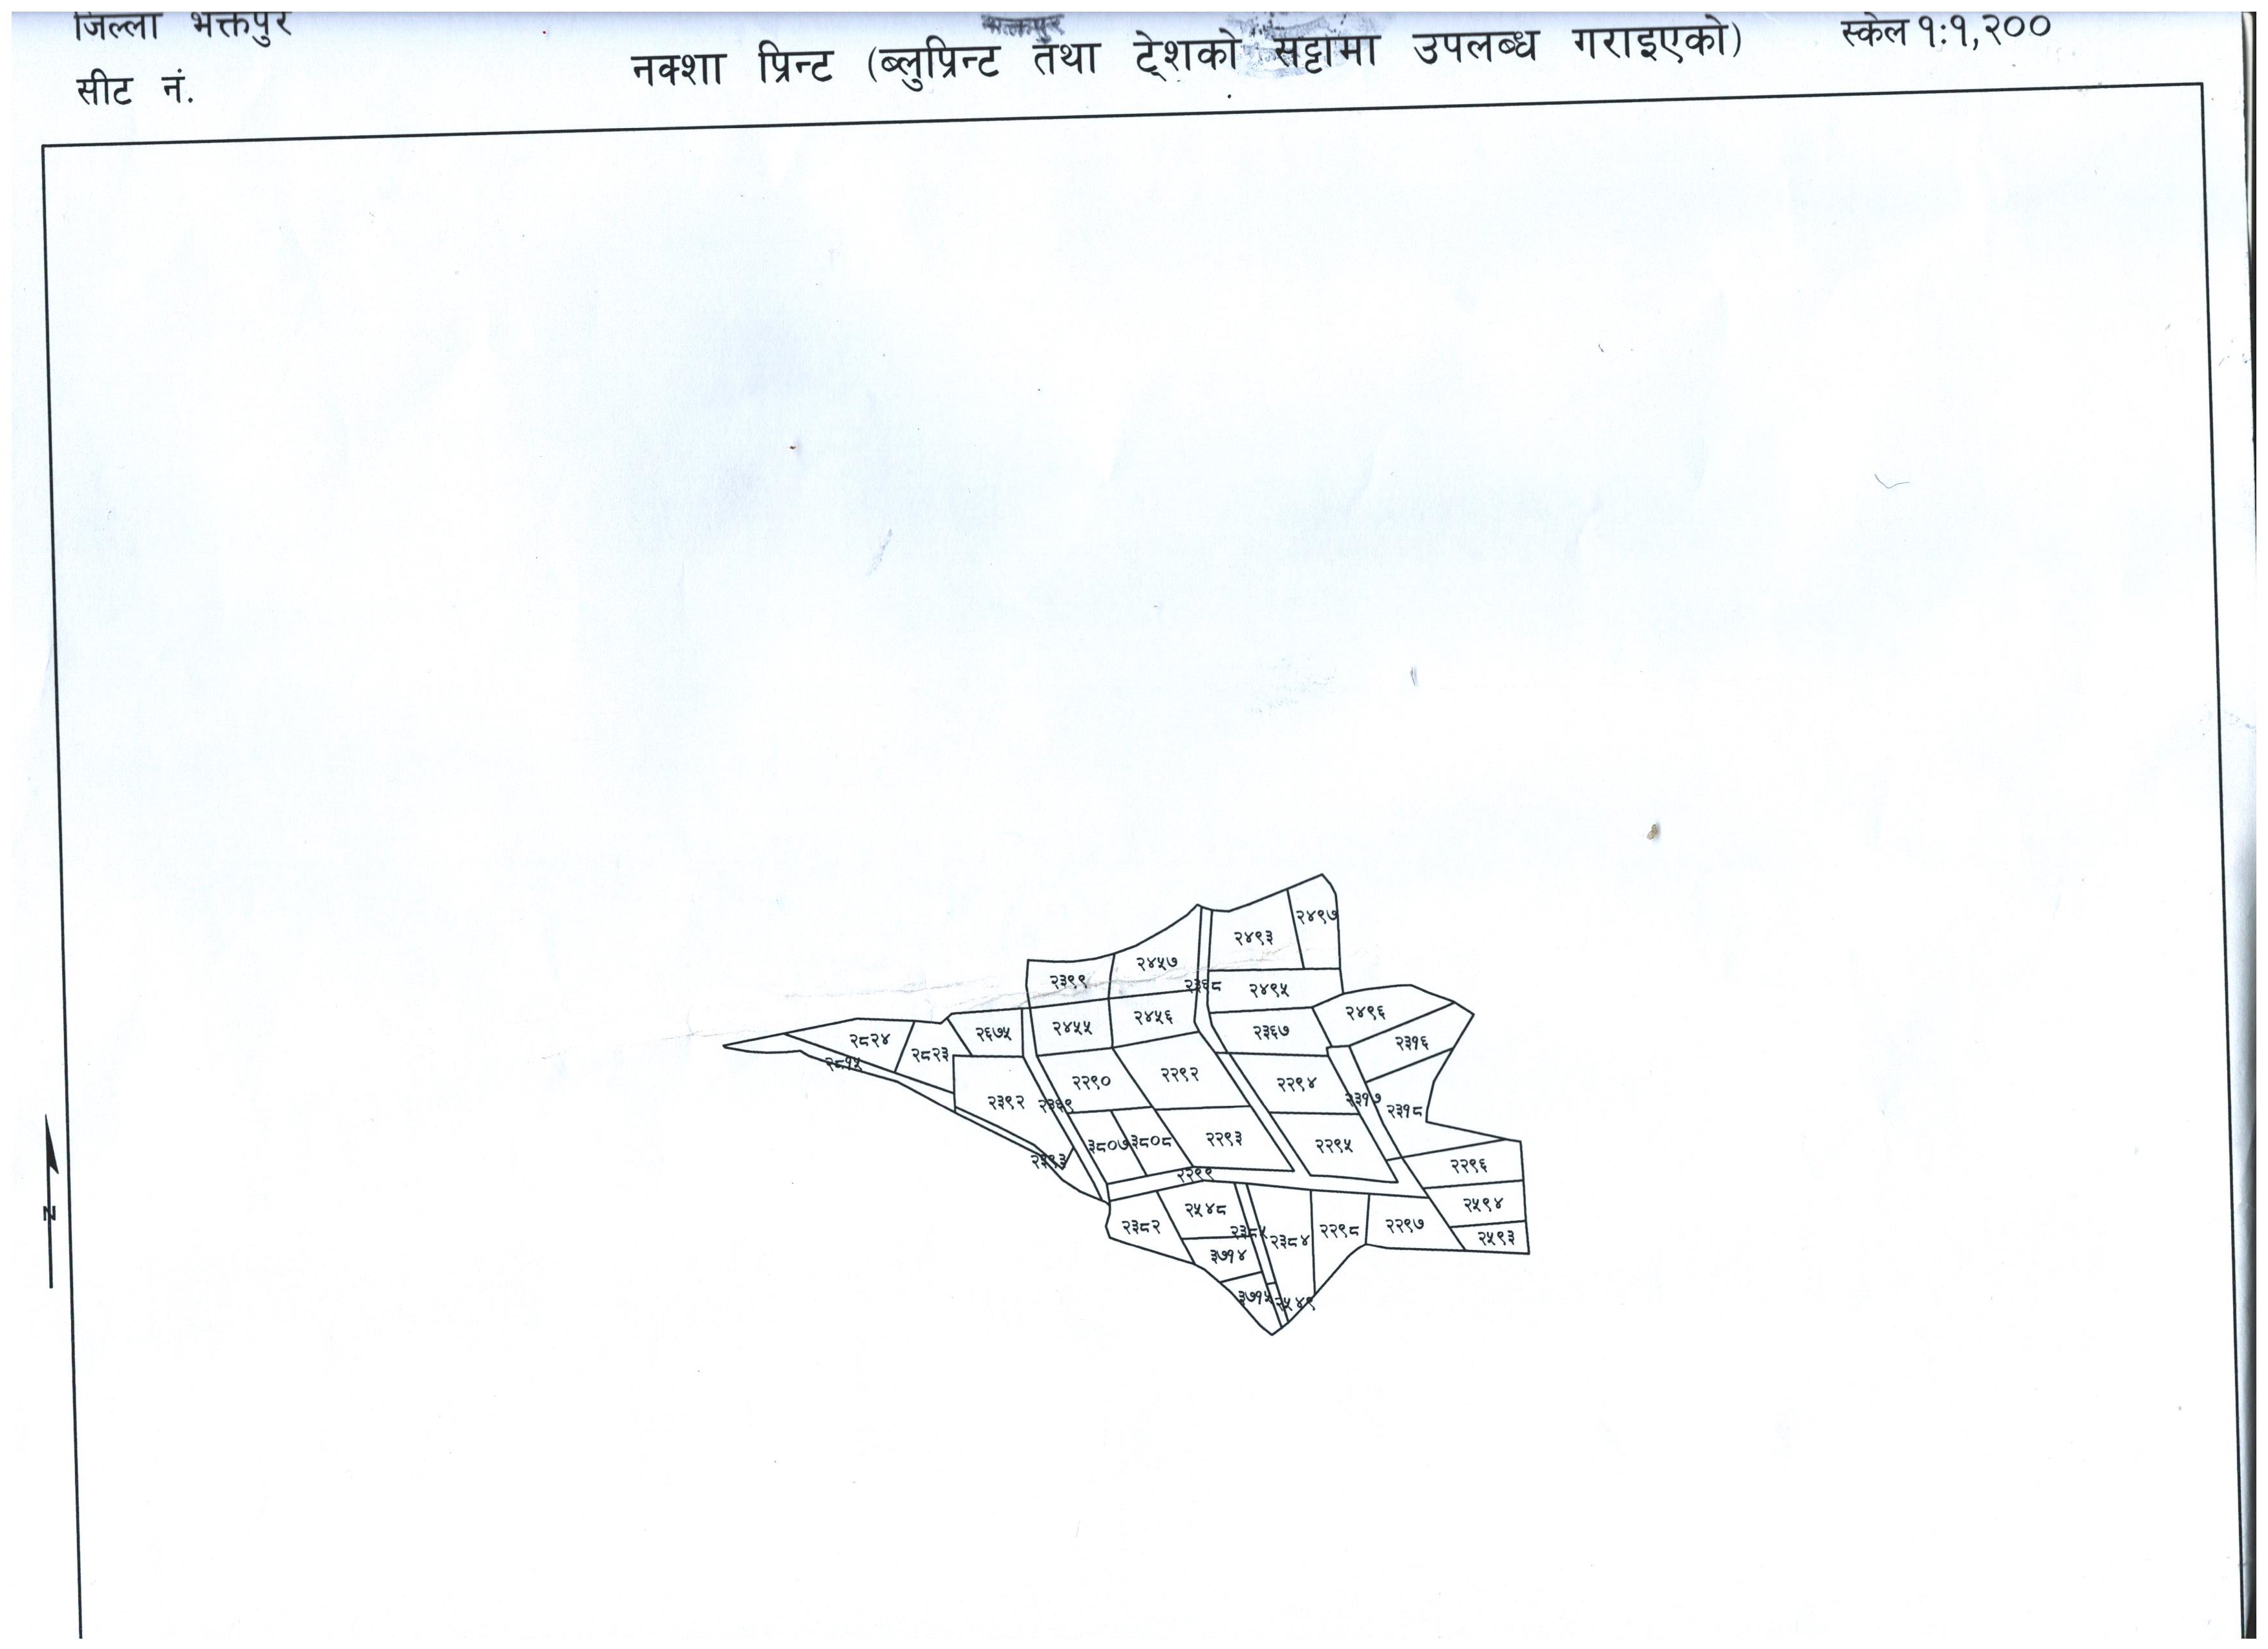 जिल्ला भक्तपुर
भक्तपुर
नक्शा प्रिन्ट (ब्लुप्रिन्ट तथा ट्रेशको सट्टामा उपलब्ध गराइएको)
स्केल १:१,२००
सीट नं.
२४९७
२४९३
२४५७
२३९९
२३६८
२४९५
२४९६
२४५५
२४५६
२३६७
२३१६
२६७५
२८२४
२८२३
२८१५
२२९०
२२९२
२२९४
२३९२
२३६९
२३१७
२३१८
३८०७
३८०८
२२९३
२२९५
२३९३
२२९९
२२९६
२५९४
२५९३
२३८२
२५४८
२३८५
२३८४
२२९८
२२९७
३७१४
३७१५
२५४९
N